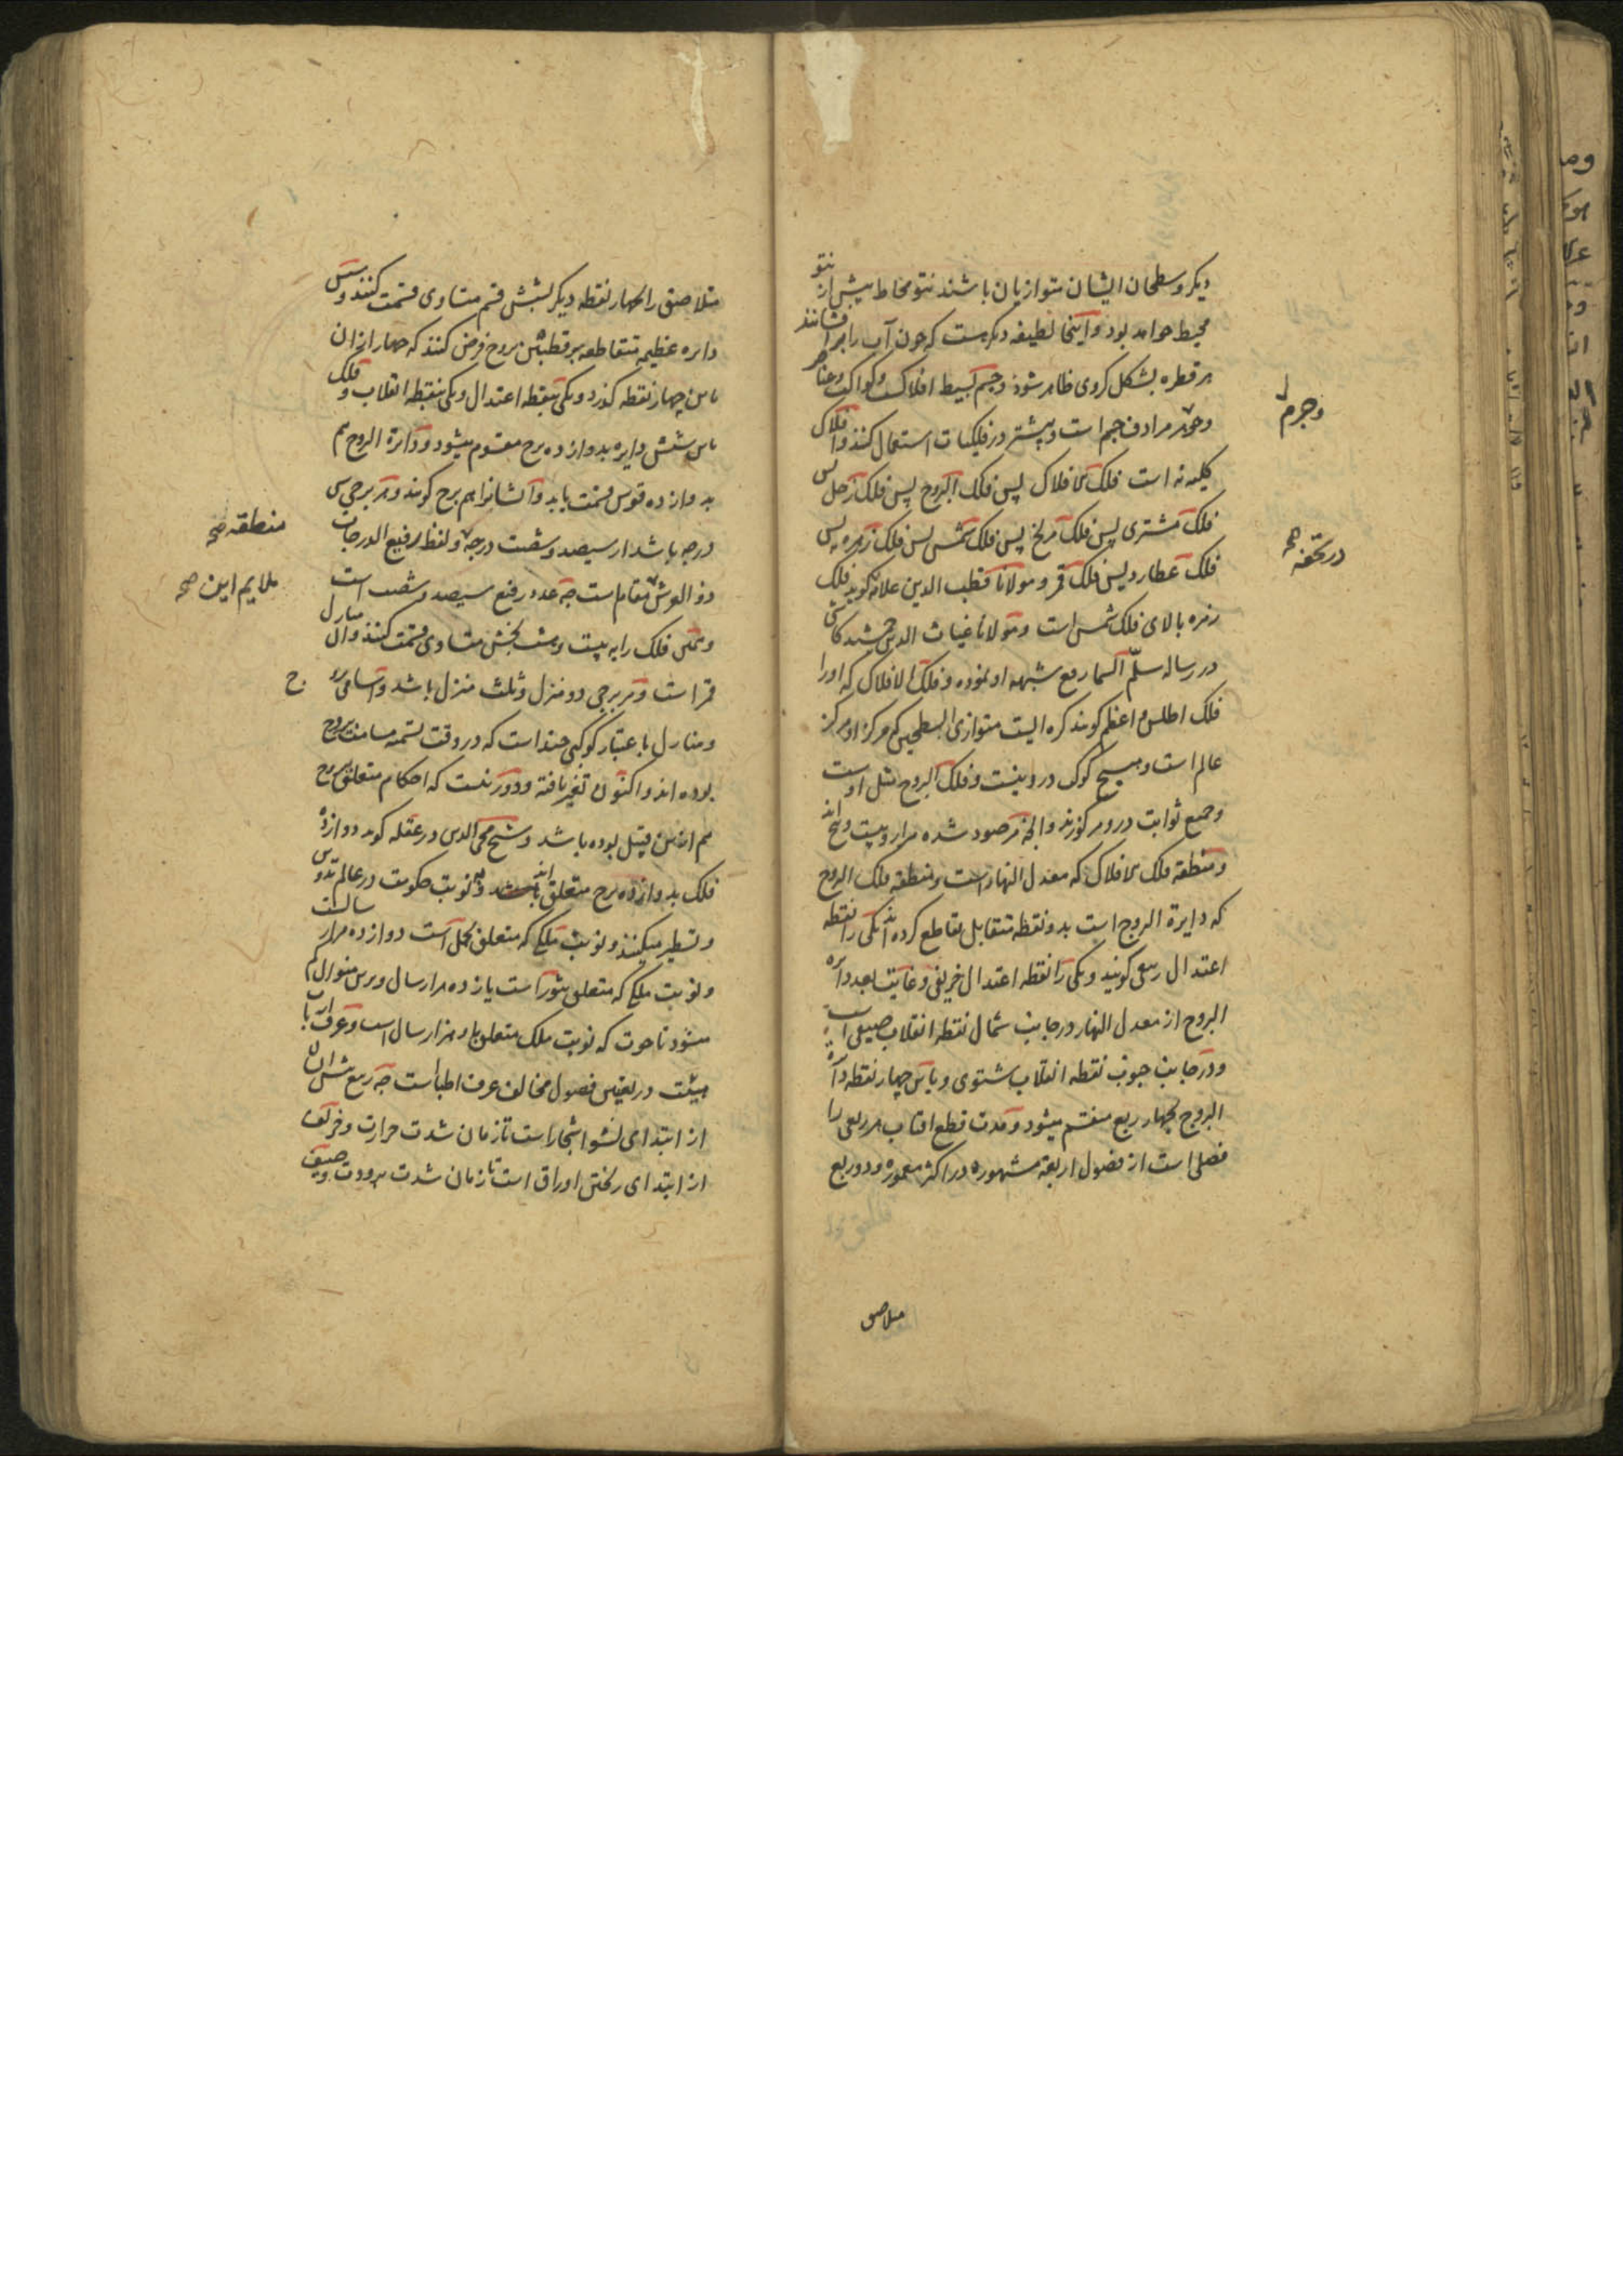 دیکر و سطحان ایشان متوازیان باشند نتو محاط بیش از نتو
محیط خواهد بود و اینجا لطیفه دیکرست که چون آب را برافشانند
هر قطره بشکل کروی ظاهر شود و جسم بسیط افلاک و کواکب و عناصر
و جرم مرادف جسم است و بیشتر در فلکیات استعمال کنند و افلاک
کلیه نه است فلک الافلاک پس فلک البروج پس فلک زحل پس
فلک مشتری پس فلک مریخ پس فلک شمس پس فلک زهره پس
فلک عطارد پس فلک قمر و مولانا قطب الدین علامه کوید فلک
زهره بالای فلک شمس است و مولانا غیاث الدین جمشید کاشی
در رساله سلّم السما رفع شبهه او نموده و فلک الافلاک که او را
فلک اطلس و اعظم کویند کره ایست متوازی السطحین که مرکز او مرکز
عالم است و هیچ کوکب درو نیست و فلک البروج مثل اوست
و جمیع ثوابت درو مرکوزند و انچه مرصود شده هزار و بیست و پنج اند
و منطقه فلک الافلاک که معدل النهار است و منطقه فلک البروج
که دایرة البروج است بدو نقطه متقابل تقاطع کرده اند یکی را نقطه
اعتدال ربیعی کویند و یکی را نقطه اعتدال خریفی و غایت بعد دایره
البروج از معدل النهار در جانب شمال نقطه انقلاب صیفی است
و در جانب جنوب نقطه انقلاب شتوی و باین چهار نقطه دایرة
البروج بچهار ربع منقسم میشود و مدت قطع افتاب هر ربعی را
فصلی است از فصول اربعه مشهوره در اکثر معموره و دو ربع
وجرم
در تحفه صح
ملاصق
متلاصق را بچهار نقطه دیکر بشش قسم متساوی قسمت کنند و شش
دایره عظیمه متقاطعه بر قطبین بروج فرض کنند که چهار از ان
باین چهار نقطه کذرد و یکی بنقطه اعتدال و یکی بنقطه انقلاب و فلک
باین شش دایره بدوازده برج مقسوم میشود و دایرة البروج هم
بدوازده قوس قسمت یابد و آنشانرا هم برج کویند و هر برجی سی
درجه باشد از سیصد و شصت درجه و لفظ رفیع الدرجات
ذو العرش مقام است چه عدد رفیع سیصد و شصت است
و همین فلک را به بیست و هشت بخش متساوی قسمت کنند و ان منازل
قمر است و هر برجی دو منزل و ثلث منزل باشد و اسامی بروج
و منازل باعتبار کوکبی چند است که در وقت تسمیه مسامت بروج
بوده اند و اکنون تغیر یافته و دور نیست که احکام متعلق بروج
هم ازین قبیل بوده باشد و شیخ محی الدین در عقله کوید دوازده
فلک بدوازده برج متعلق اند و بنوبت حکومت در عالم تدویر
و تسطیر میکنند و نوبت ملکی که متعلق بحمل است دوازده هزار سالست
و نوبت ملکی که متعلق بثور است یازده هزار سال و برین منوال کم
میشود تا حوت که نوبت ملک متعلق باو هزار سال است و عرف ارباب
هیئت در تعیین فصول مخالف عرف اطبا است چه ربیع پیش ایشان
از ابتدای نشو اشجار است تا زمان شدت حرارت و خریف
از ابتدای ریختن اوراق است تا زمان شدت برودت و صیف
منطقه صح
ملایم این صح